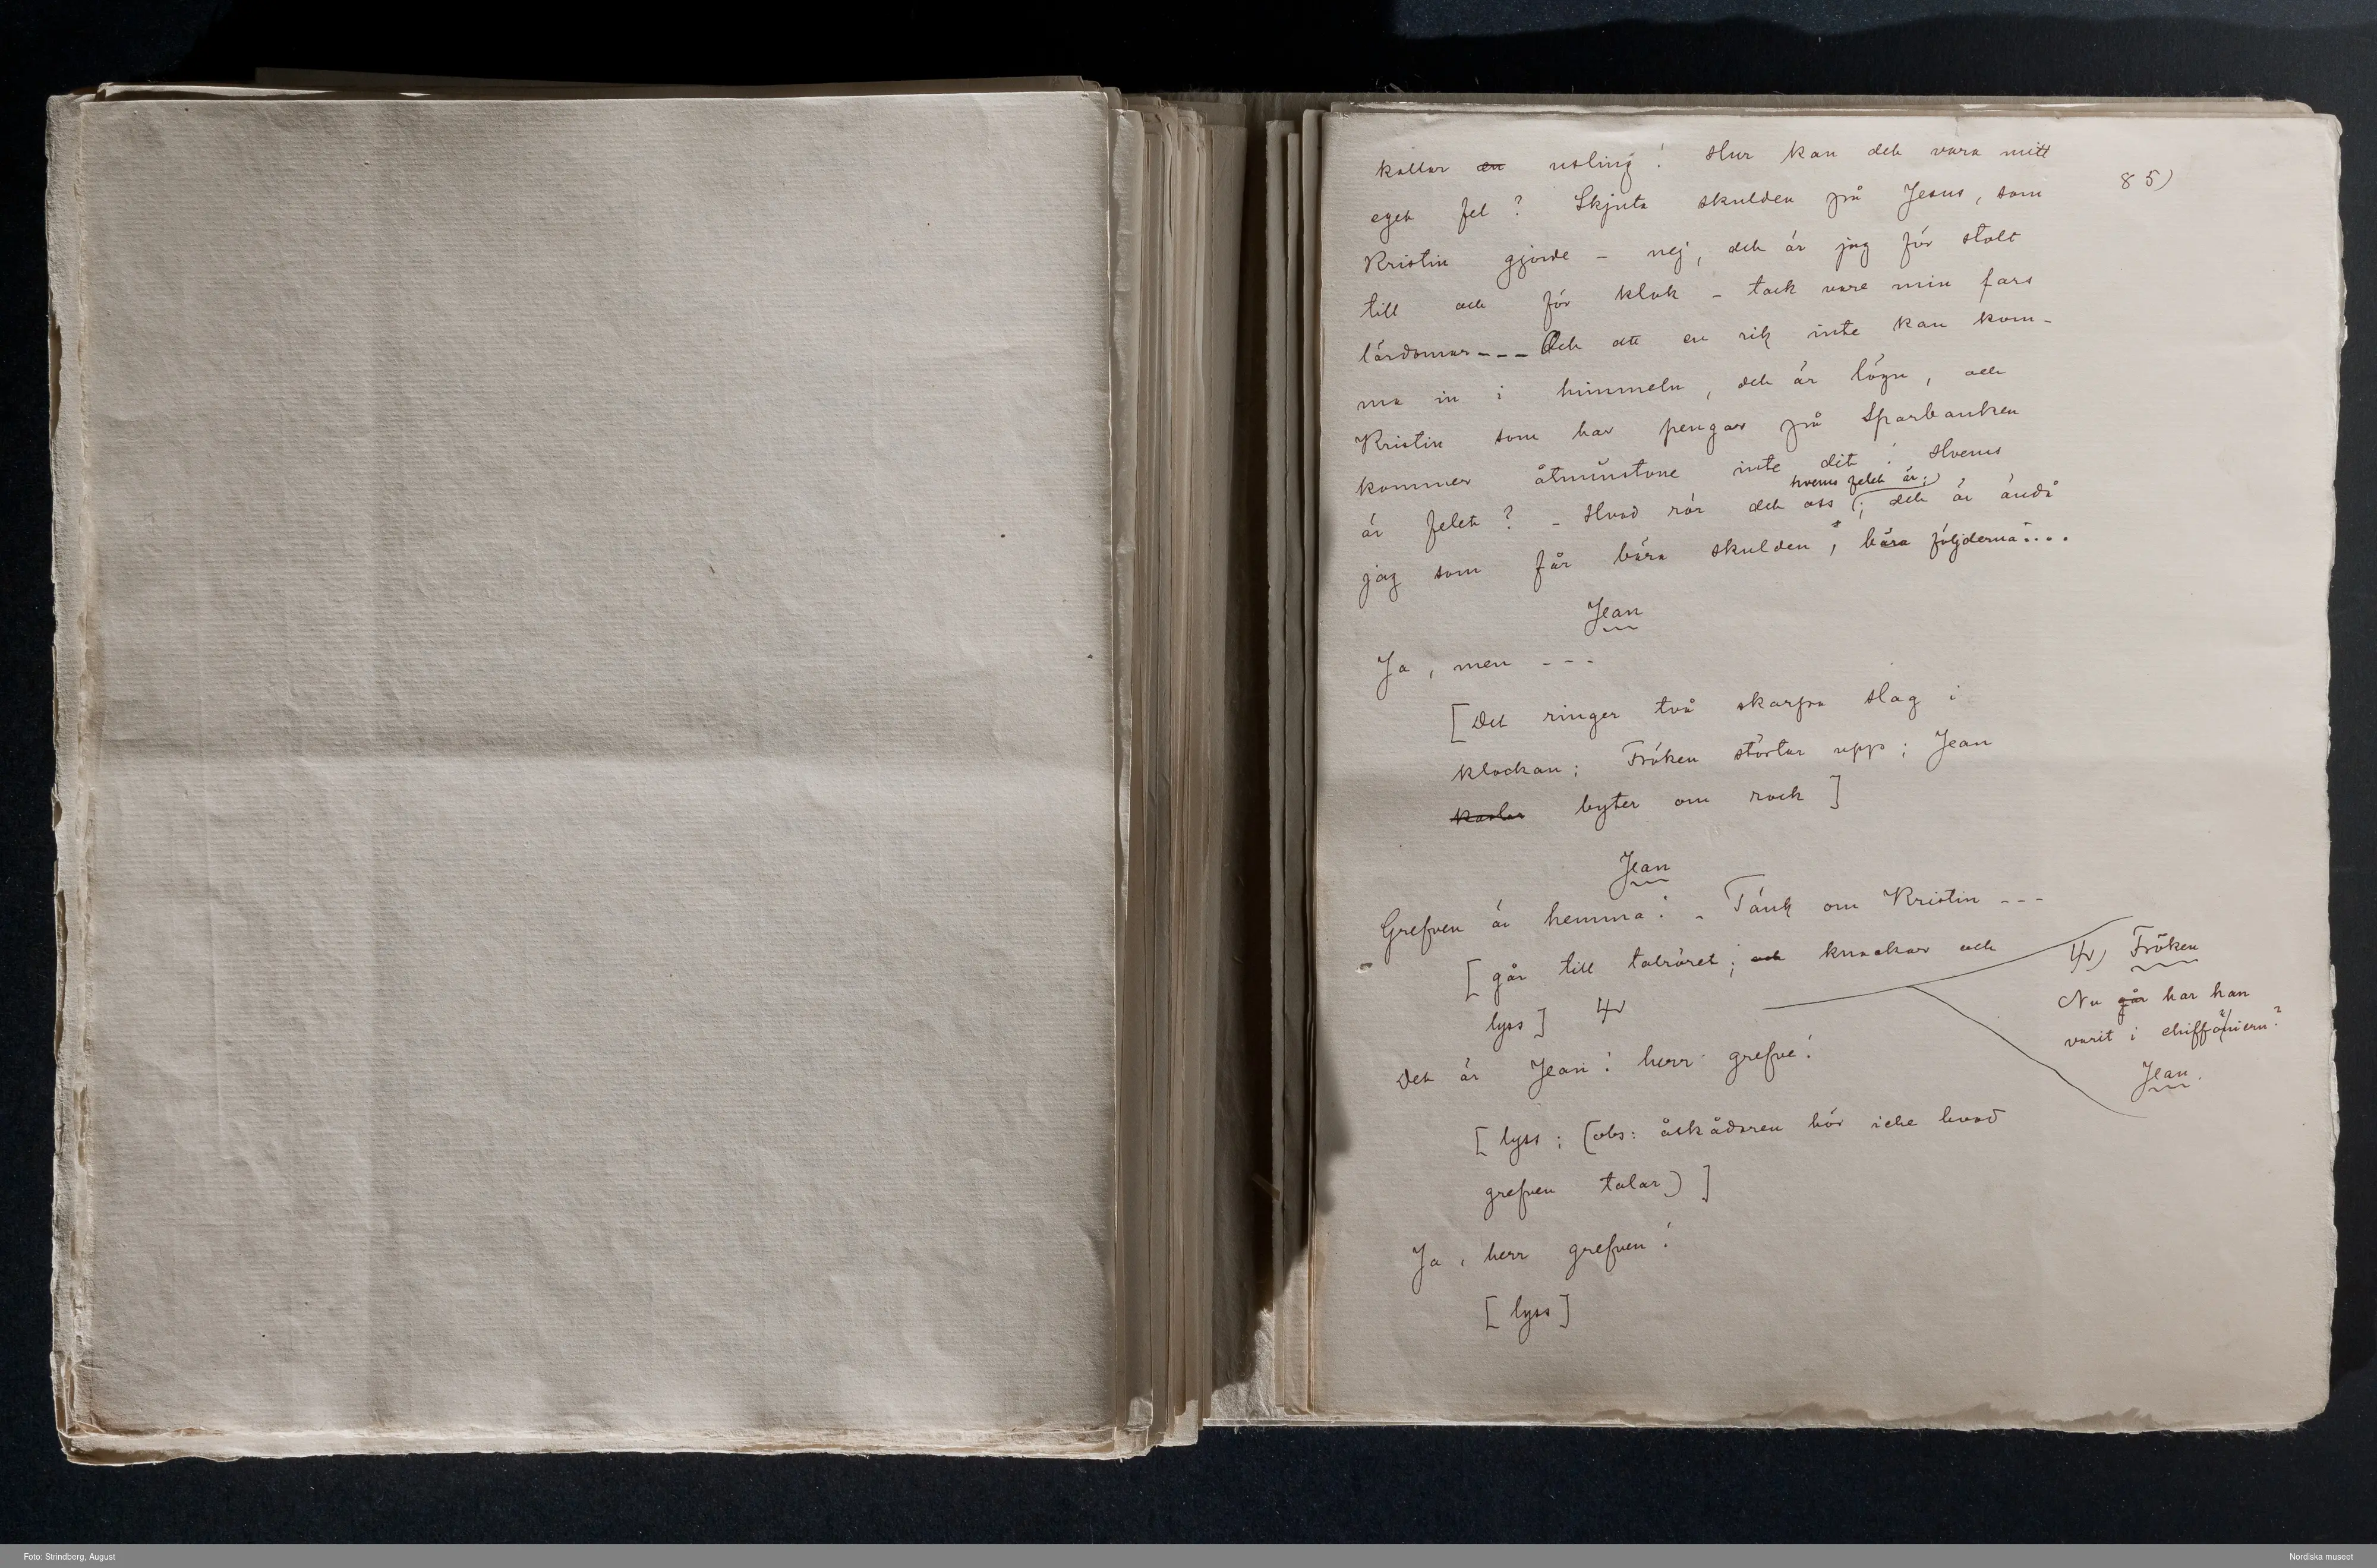 85)
kallar en usling! Hur kan det vara mitt
eget fel? Skjuta skulden på Jesus, som
Kristin gjorde – nej, det är jag för stolt
till och för klok – tack vare min fars
lärdomar--- Och att en rik inte kan kom-
ma in i himmeln, det är lögn, och
Kristin som har pengar på Sparbanken
kommer åtminstone inte dit! Hvems
är felet? – Hvad rör det oss hvems felet är; det är ändå
jag som får bära skulden, bära följderna....
Jean
Ja, men ---
[Det ringer två skarpa slag i
klockan; Fröken störtar upp; Jean
kastar byter om rock]
Jean
Grefven är hemma! – Tänk om Kristin ---
[går till talröret; och knackar och
lyss]
Fröken
Nu går har han
varit i chiffonieru?
Jean.
Det är Jean! herr grefve!
[lyss; (obs: åskådaren hör icke hvad
grefven talar)]
Ja, herr grefven!
[lyss]
Foto: Strindberg, August
Nordiska museet